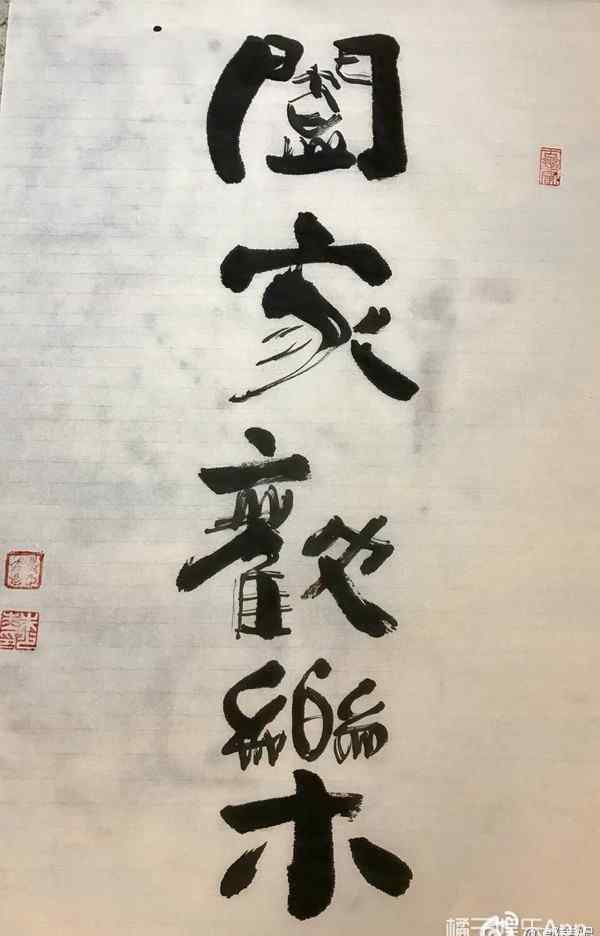 闔家歡樂
橘子娱乐App